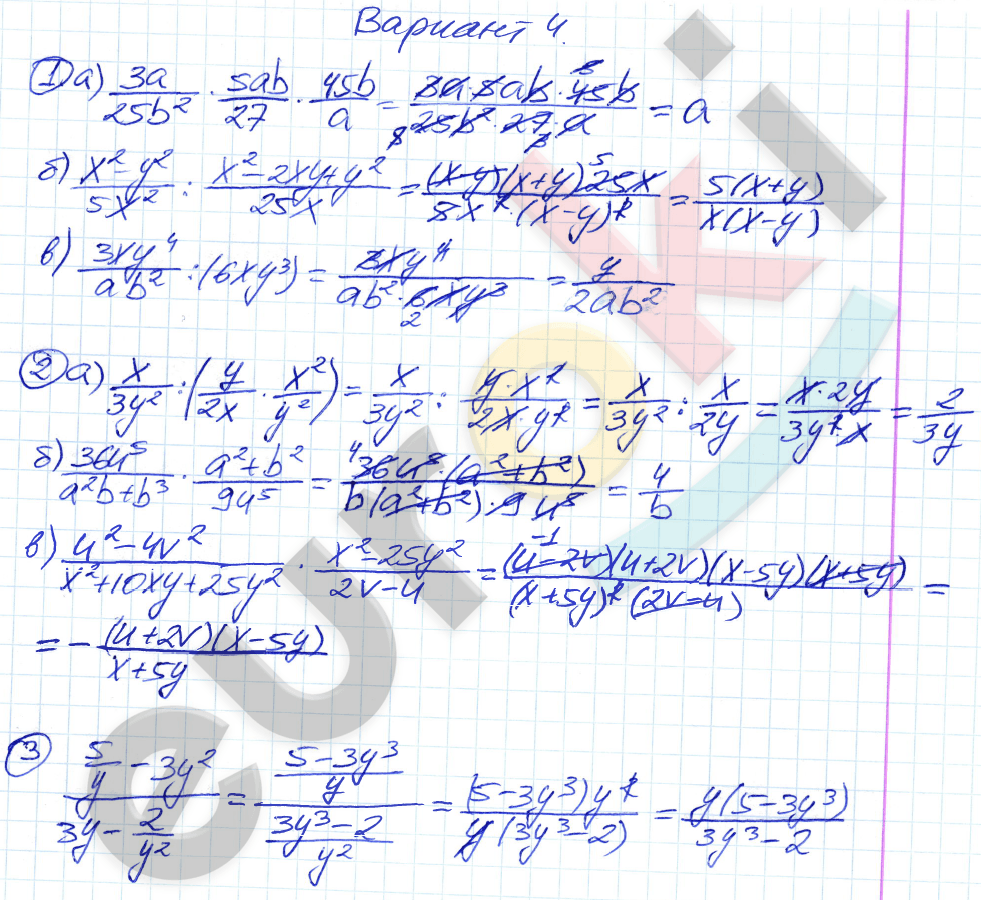 Вариант 4.
1 а) 3a/25b² · 5ab/27 · 45b/a = 3a·5ab·45b/25b²·27·a = a
б) x²-y²/5x² : x²-2xy+y²/25x = (x-y)(x+y)25x/5x²·(x-y)² = 5(x+y)/x(x-y)
в) 3xy⁴/ab² : (6xy³) = 3xy⁴/ab²·6xy³ = y/2ab²
2 а) x/3y² : (y/2x · x²/y²) = x/3y² : y·x²/2x·y² = x/3y² : x/2y = x·2y/3y²·x = 2/3y
б) 36u⁵/a²b+b³ · a²+b²/9u⁵ = 36u⁵·(a²+b²)/b(a²+b²)·9u⁵ = 4/b
в) u²-4v²/x²+10xy+25y² · x²-25y²/2v-u = (u-2v)(u+2v)(x-5y)(x+5y)/(x+5y)²(2v-u) =
= - (u+2v)(x-5y)/x+5y
3 5/y - 3y² / 3y - 2/y² = 5-3y³/y / 3y³-2/y² = (5-3y³)y²/y(3y³-2) = y(5-3y³)/3y³-2
euroki